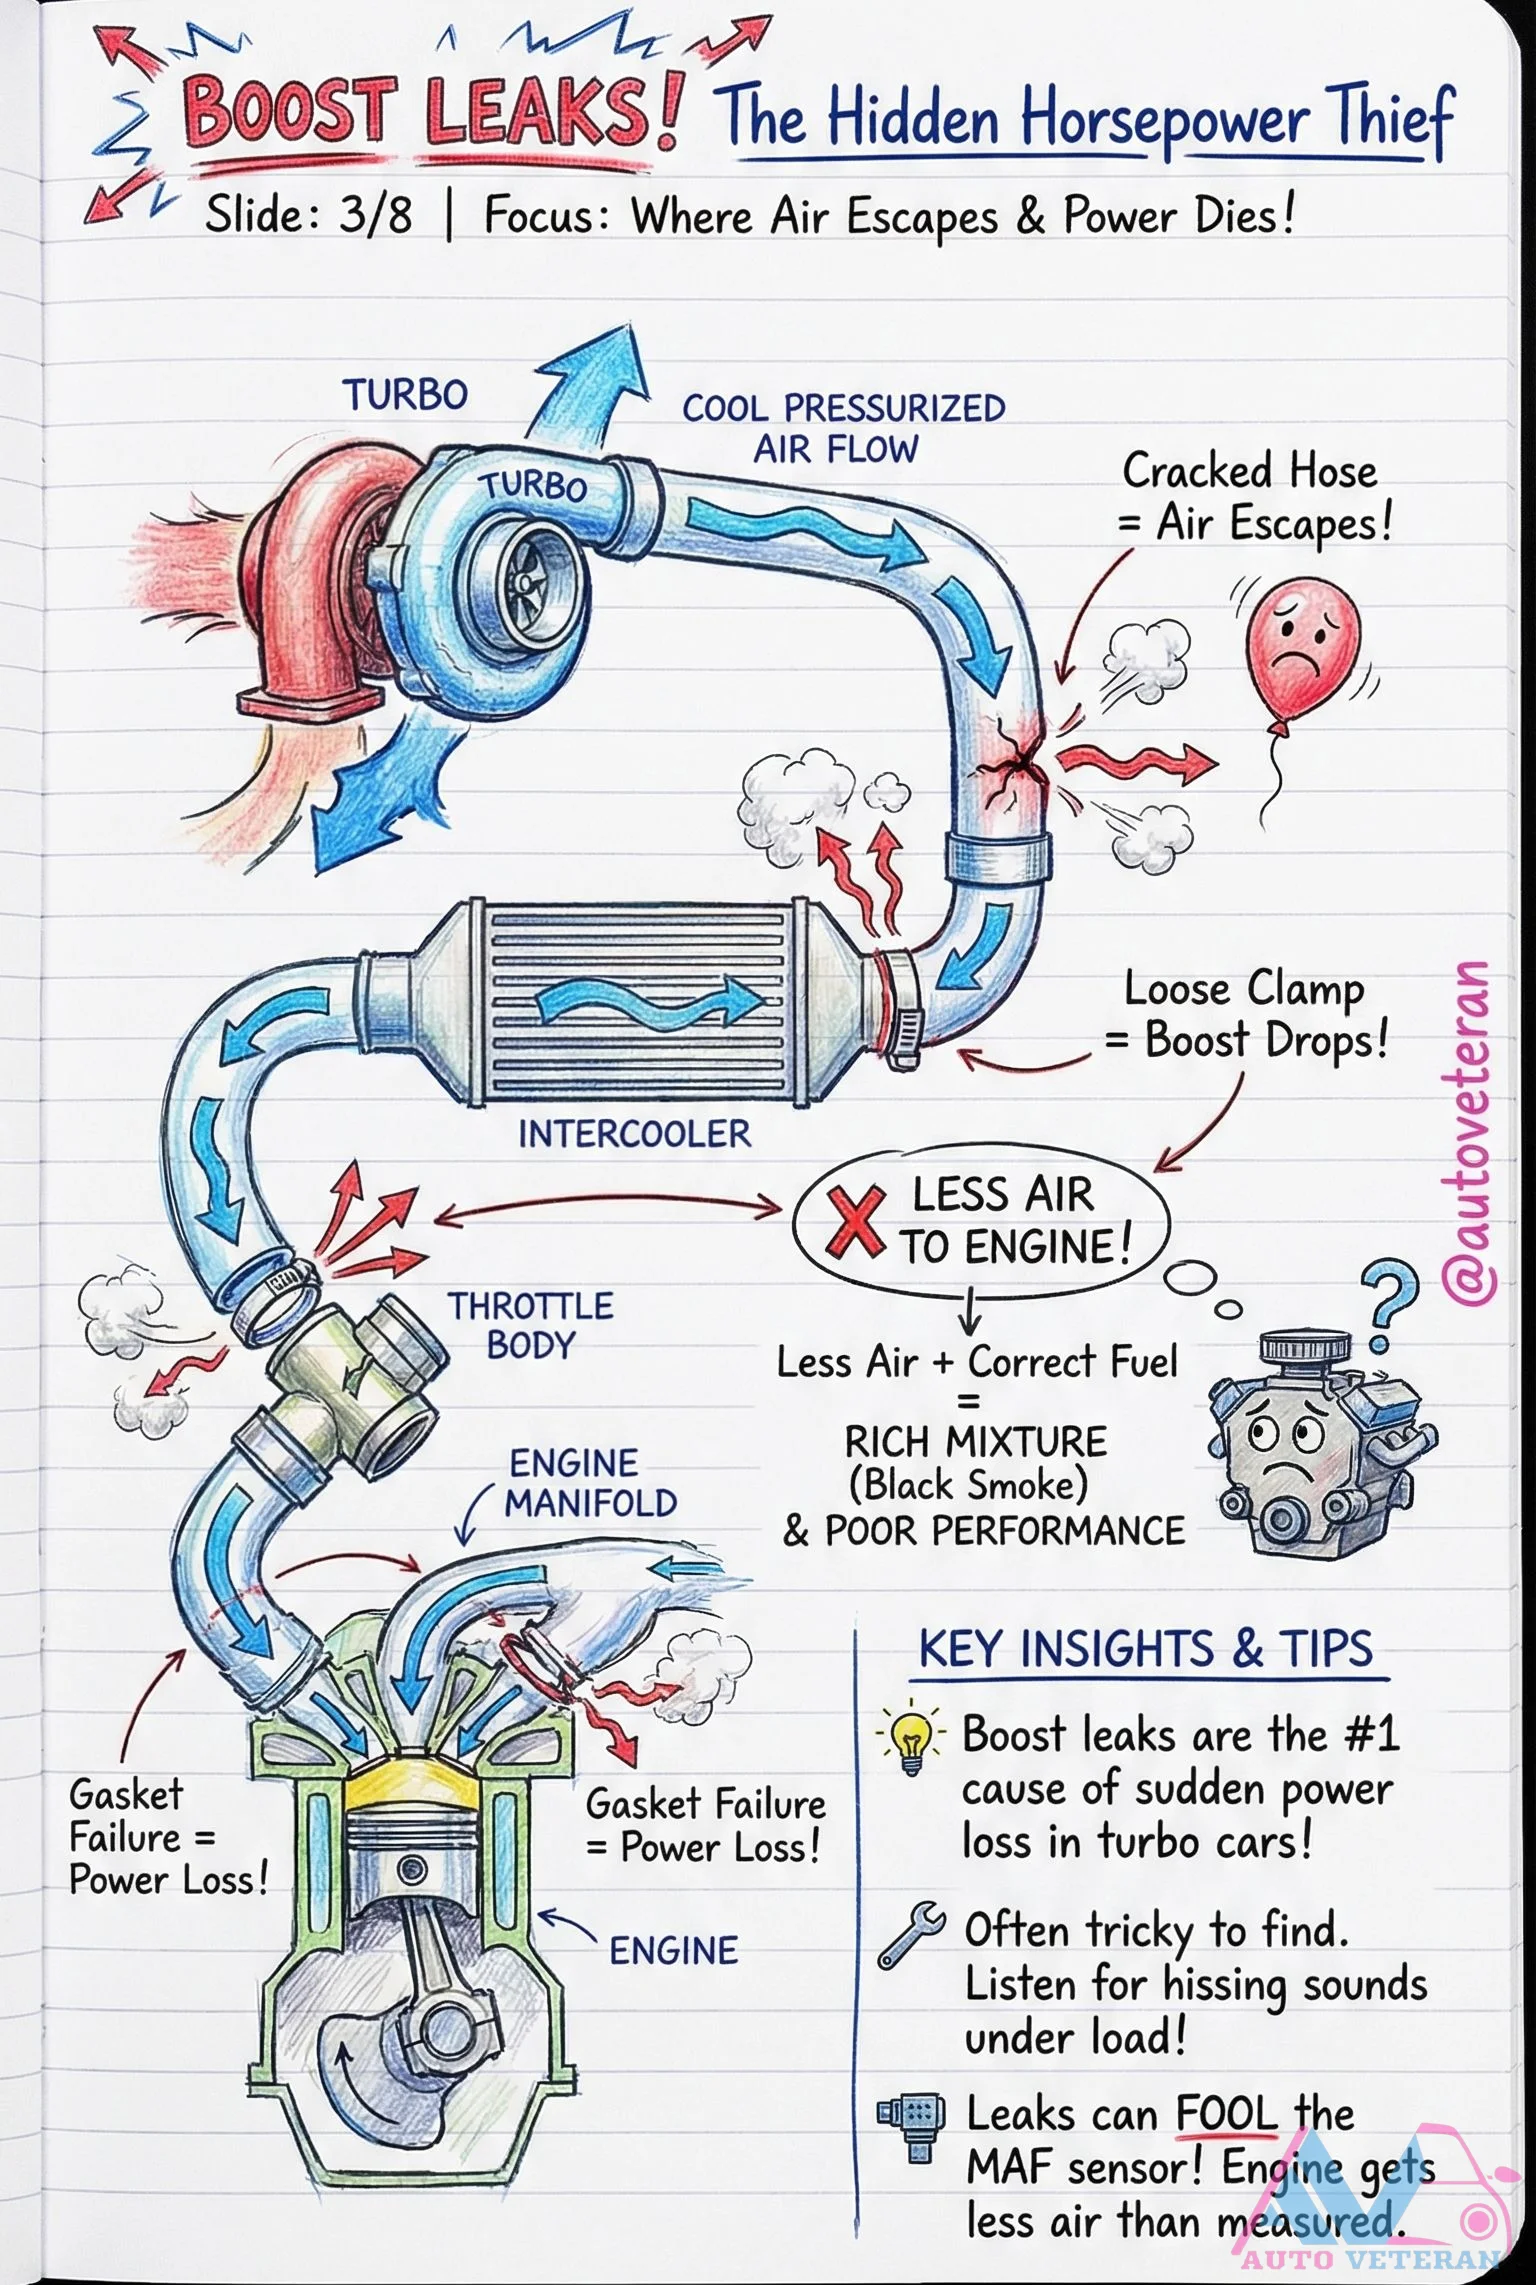 BOOST LEAKS! The Hidden Horsepower Thief
Slide: 3/8 | Focus: Where Air Escapes & Power Dies!
TURBO
COOL PRESSURIZED
AIR FLOW
TURBO
Cracked Hose
= Air Escapes!
Loose Clamp
= Boost Drops!
INTERCOOLER
LESS AIR
TO ENGINE!
THROTTLE
BODY
Less Air + Correct Fuel
=
RICH MIXTURE
(Black Smoke)
& POOR PERFORMANCE
?
ENGINE
MANIFOLD
Gasket
Failure =
Power Loss!
Gasket Failure
= Power Loss!
ENGINE
KEY INSIGHTS & TIPS
Boost leaks are the #1
cause of sudden power
loss in turbo cars!
Often tricky to find.
Listen for hissing sounds
under load!
Leaks can FOOL the
MAF sensor! Engine gets
less air than measured.
@autoveteran
AUTO VETERAN